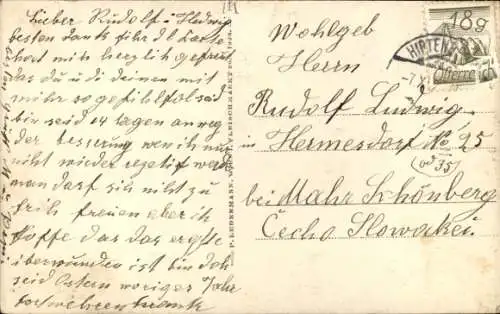 Lieber Rudolf u. Hedwig
besten Dank fihr d. Carte
hat mich herzlich gefreut
das du u di deinen mit
mihr so gefihlfol seid
bin seid 14 tagen an weg
der besserung wen ich nur
niht wieder
man darf sich niht zu
frih freuen aber ih
hoffe das das ergste
überwunden ist bin doh
seid Ostern woriger Jahr
krank
P. LEDERMANN, WIEN, I., FLEISCHMARKT
Wohlgeb
Herrn
Rudolf Ludwig
in Hermesdorf No 25
(od 35)
bei Mahr. Schönberg
Čecho Slowakei
18g
HIRTENB
Österreich